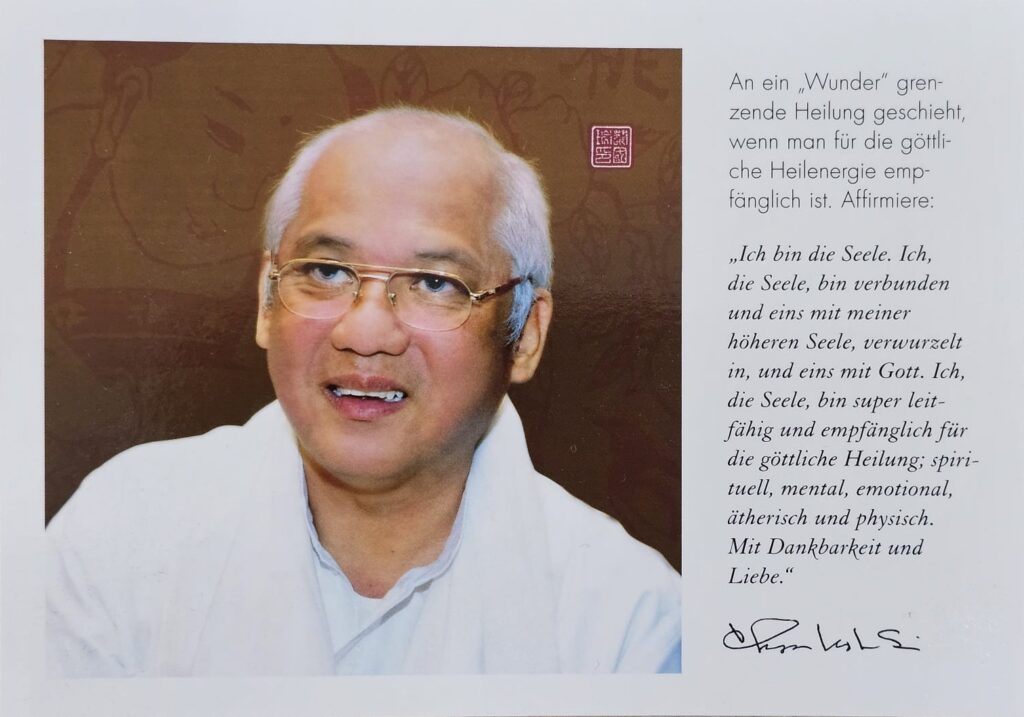 An ein „Wunder“ gren-
zende Heilung geschieht,
wenn man für die göttli-
che Heilenergie emp-
fänglich ist. Affirmiere:
„Ich bin die Seele. Ich,
die Seele, bin verbunden
und eins mit meiner
höheren Seele, verwurzelt
in, und eins mit Gott. Ich,
die Seele, bin super leit-
fähig und empfänglich für
die göttliche Heilung; spiri-
tuell, mental, emotional,
ätherisch und physisch.
Mit Dankbarkeit und
Liebe.“